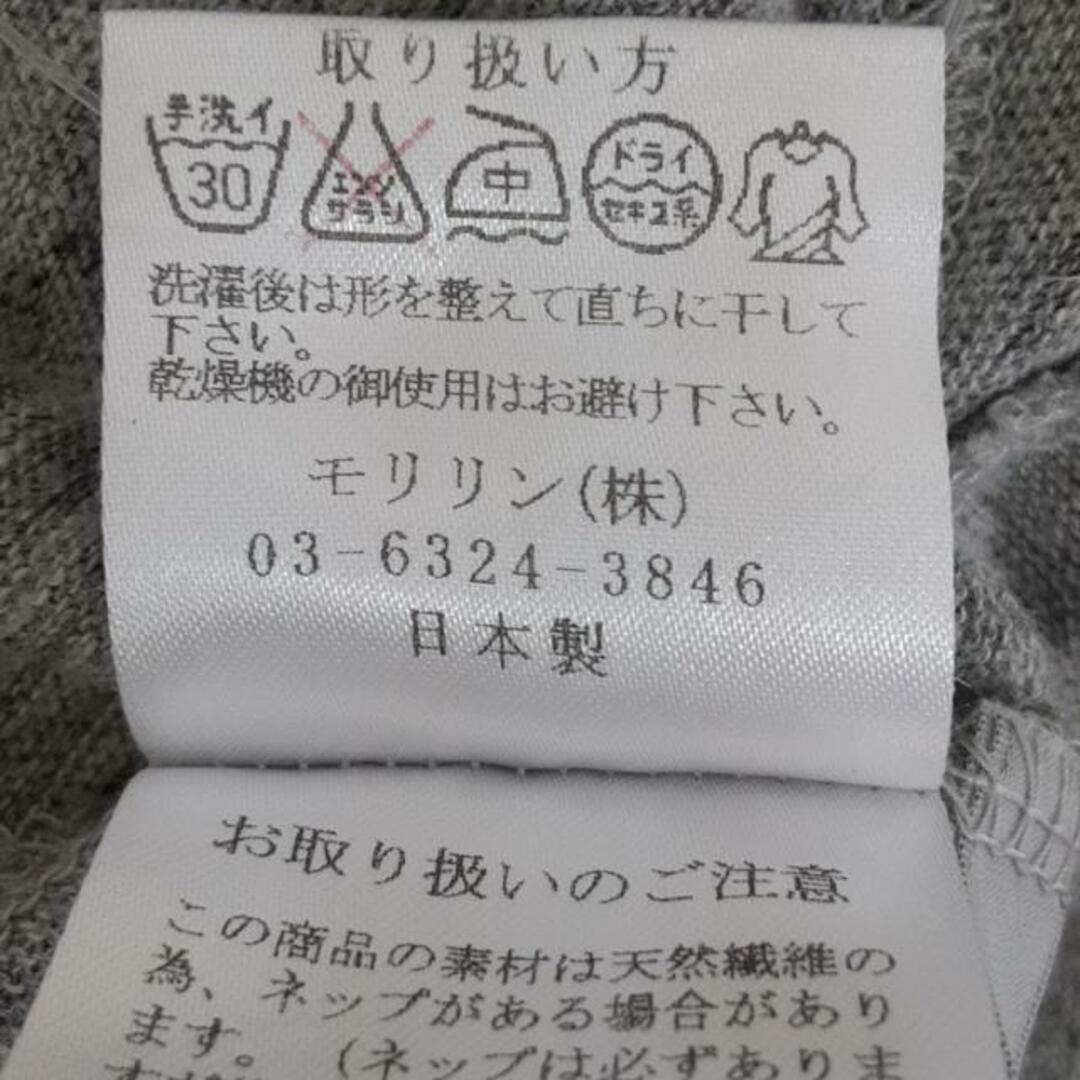 取り扱い方
手洗イ
30
エンソ
サラシ
中
ドライ
セキユ系
洗濯後は形を整えて直ちに干して
下さい。
乾燥機の御使用はお避け下さい。
モリリン(株)
03-6324-3846
日本製
お取り扱いのご注意
この商品の素材は天然繊維の
為、ネップがある場合があり
ます。(ネップは必ずありま